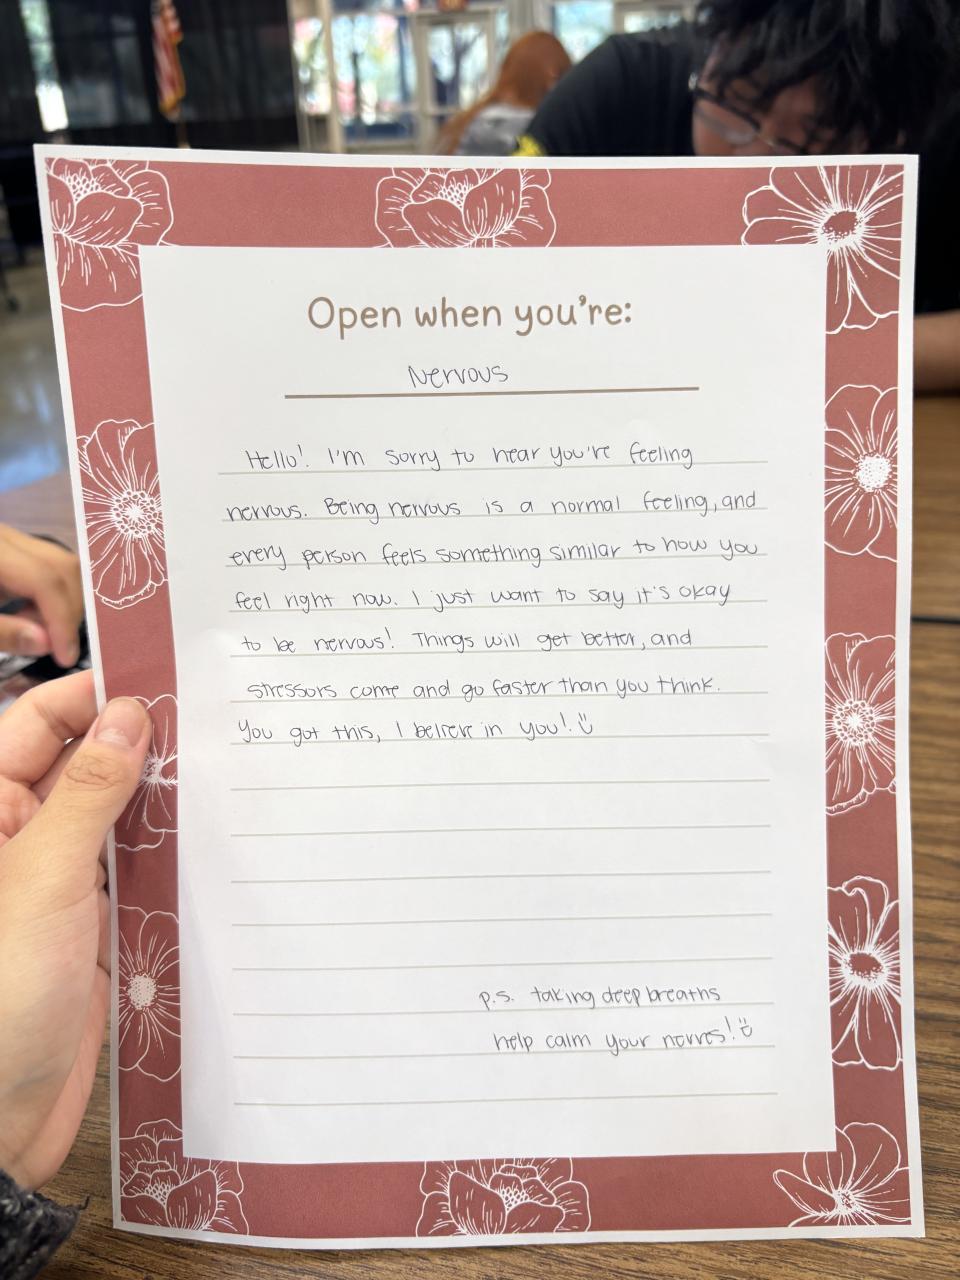 Open when you're:
Nervous
Hello! I'm sorry to hear you're feeling
nervous. Being nervous is a normal feeling, and
every person feels something similar to how you
feel right now. I just want to say it's okay
to be nervous! Things will get better, and
stressors come and go faster than you think.
You got this, I believe in you! :)
p.s. taking deep breaths
help calm your nerves! :)